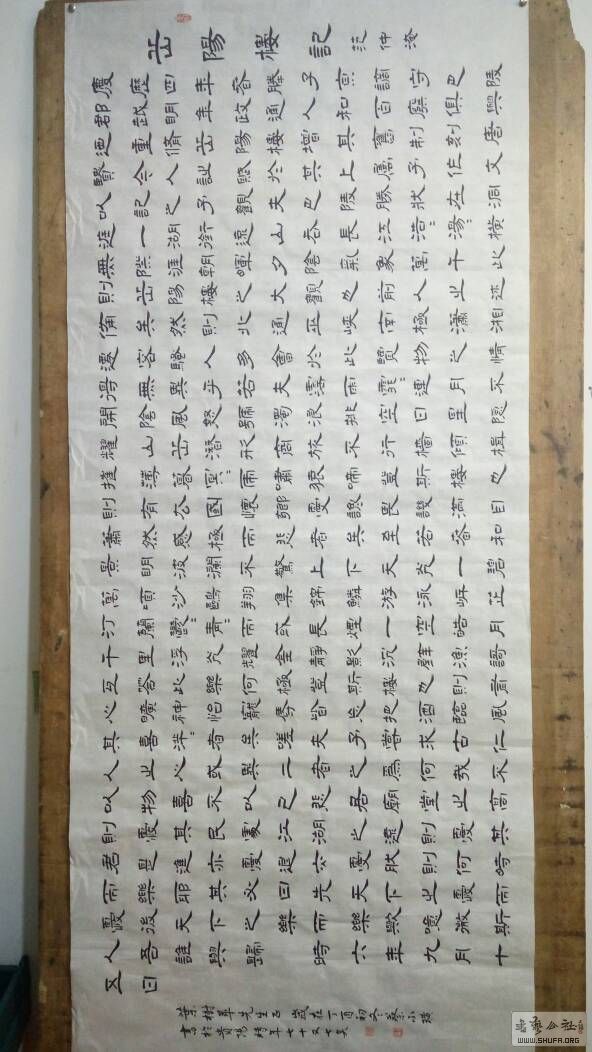 岳陽樓記 范仲淹
慶歷四年春滕子京謫守巴陵
郡越明年政通人和百廢具興
迺重脩岳陽樓增其舊制刻唐
賢今人詩賦於其上屬予作文
以記之予觀夫巴陵勝狀在洞
庭一湖銜遠山吞長江浩〻湯〻橫
無際涯朝暉夕陰氣象萬千此
則岳陽樓之大觀也前人之述
備矣然則北通巫峽南極瀟湘
遷客騷人多會於此覽物之情
得無異乎若夫霪雨霏〻連月不
開陰風怒號濁浪排空日星隱
耀山岳潛形商旅不行檣傾楫
摧薄暮冥〻虎嘯猿啼登斯樓也
則有去國懷鄉憂讒畏譏滿目
蕭然感極而悲者矣至若春和
景明波瀾不驚上下天光一碧
萬頃沙鷗翔集錦鱗游泳岸芷
汀蘭鬱〻青〻而或長煙一空皓月
千里浮光耀金靜影沉璧漁歌
互答此樂何極登斯樓也則有
心曠神怡寵辱皆忘把酒臨風
其喜洋〻者矣嗟夫予嘗求古仁
人之心或異二者之為何哉不
以物喜不以己悲居廟堂之高
則憂其民處江湖之遠則憂其
君是進亦憂退亦憂然則何時
而樂耶其必曰先天下之憂而
憂後天下之樂而樂歟噫微斯
人吾誰與歸時六年九月十
五日
葉樹華先生正 歲在丁酉初冬 蔡小
書於貴陽時年七十又七矣
WWW.SHUFA.ORG